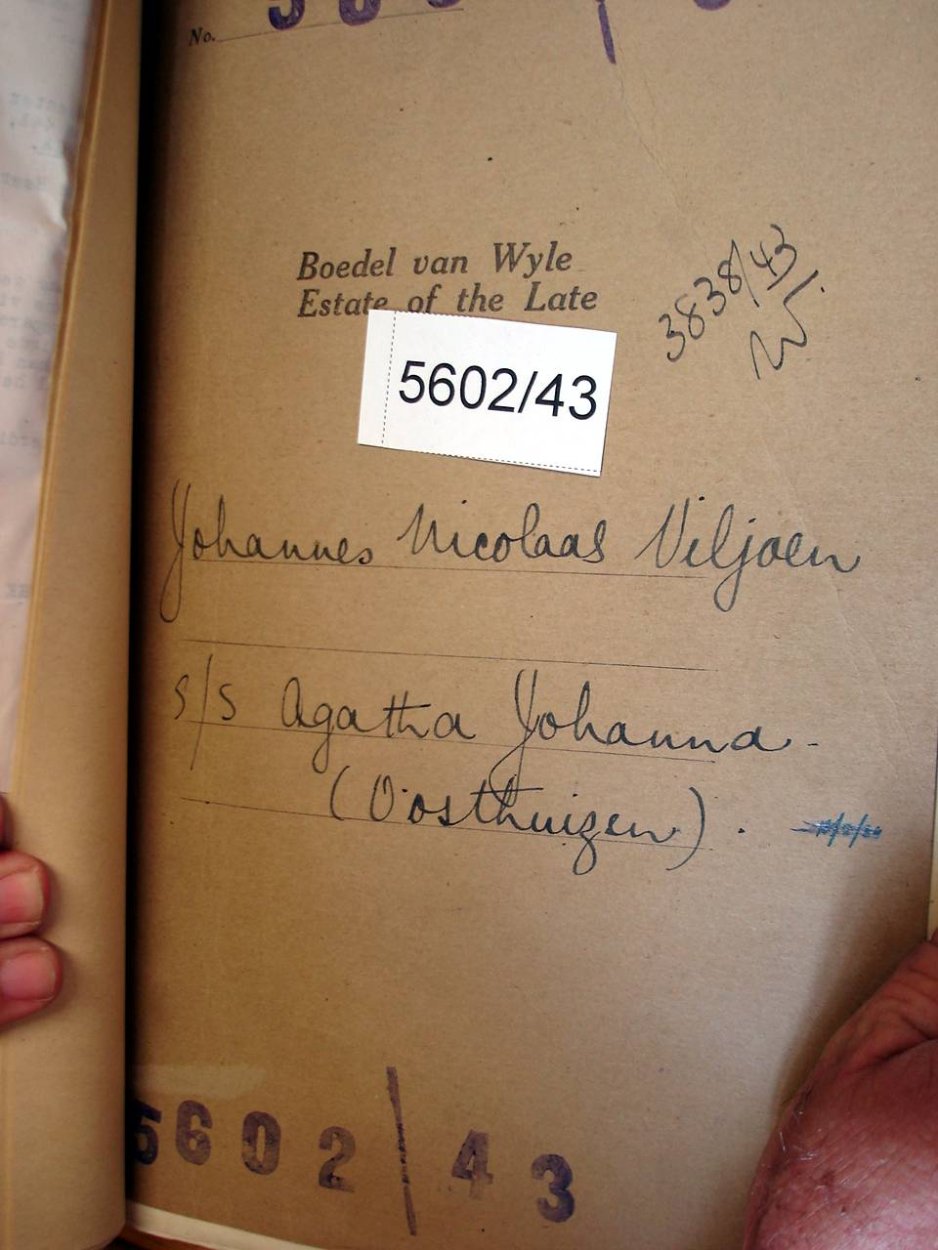 No.
Boedel van Wyle
Estate of the Late
3838/43
5602/43
Johannes Nicolaas Viljoen
s/s Agatha Johanna
(Oosthuizen).
5602/43